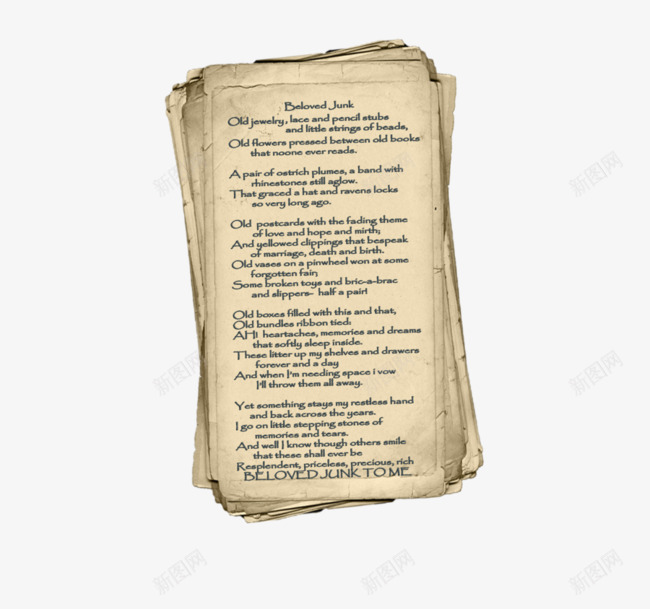 Beloved Junk
Old jewelry, lace and pencil stubs
and little strings of beads,
Old flowers pressed between old books
that noone ever reads.
A pair of ostrich plumes, a band with
rhinestones still aglow.
That graced a hat and ravens locks
so very long ago.
Old postcards with the fading theme
of love and hope and mirth;
And yellowed clippings that bespeak
of marriage, death and birth.
Old vases on a pinwheel won at some
forgotten fair;
Some broken toys and bric-a-brac
and slippers- half a pair!
Old boxes filled with this and that,
Old bundles ribbon tied:
AH! heartaches, memories and dreams
that softly sleep inside.
These litter up my shelves and drawers
forever and a day
And when I'm needing space i vow
I'll throw them all away.
Yet something stays my restless hand
and back across the years.
I go on little stepping stones of
memories and tears.
And well I know though others smile
that these shall ever be
Resplendent, priceless, precious, rich
BELOVED JUNK TO ME
新图网
新图网
新图网
新图网
新图网
新图网
新图网